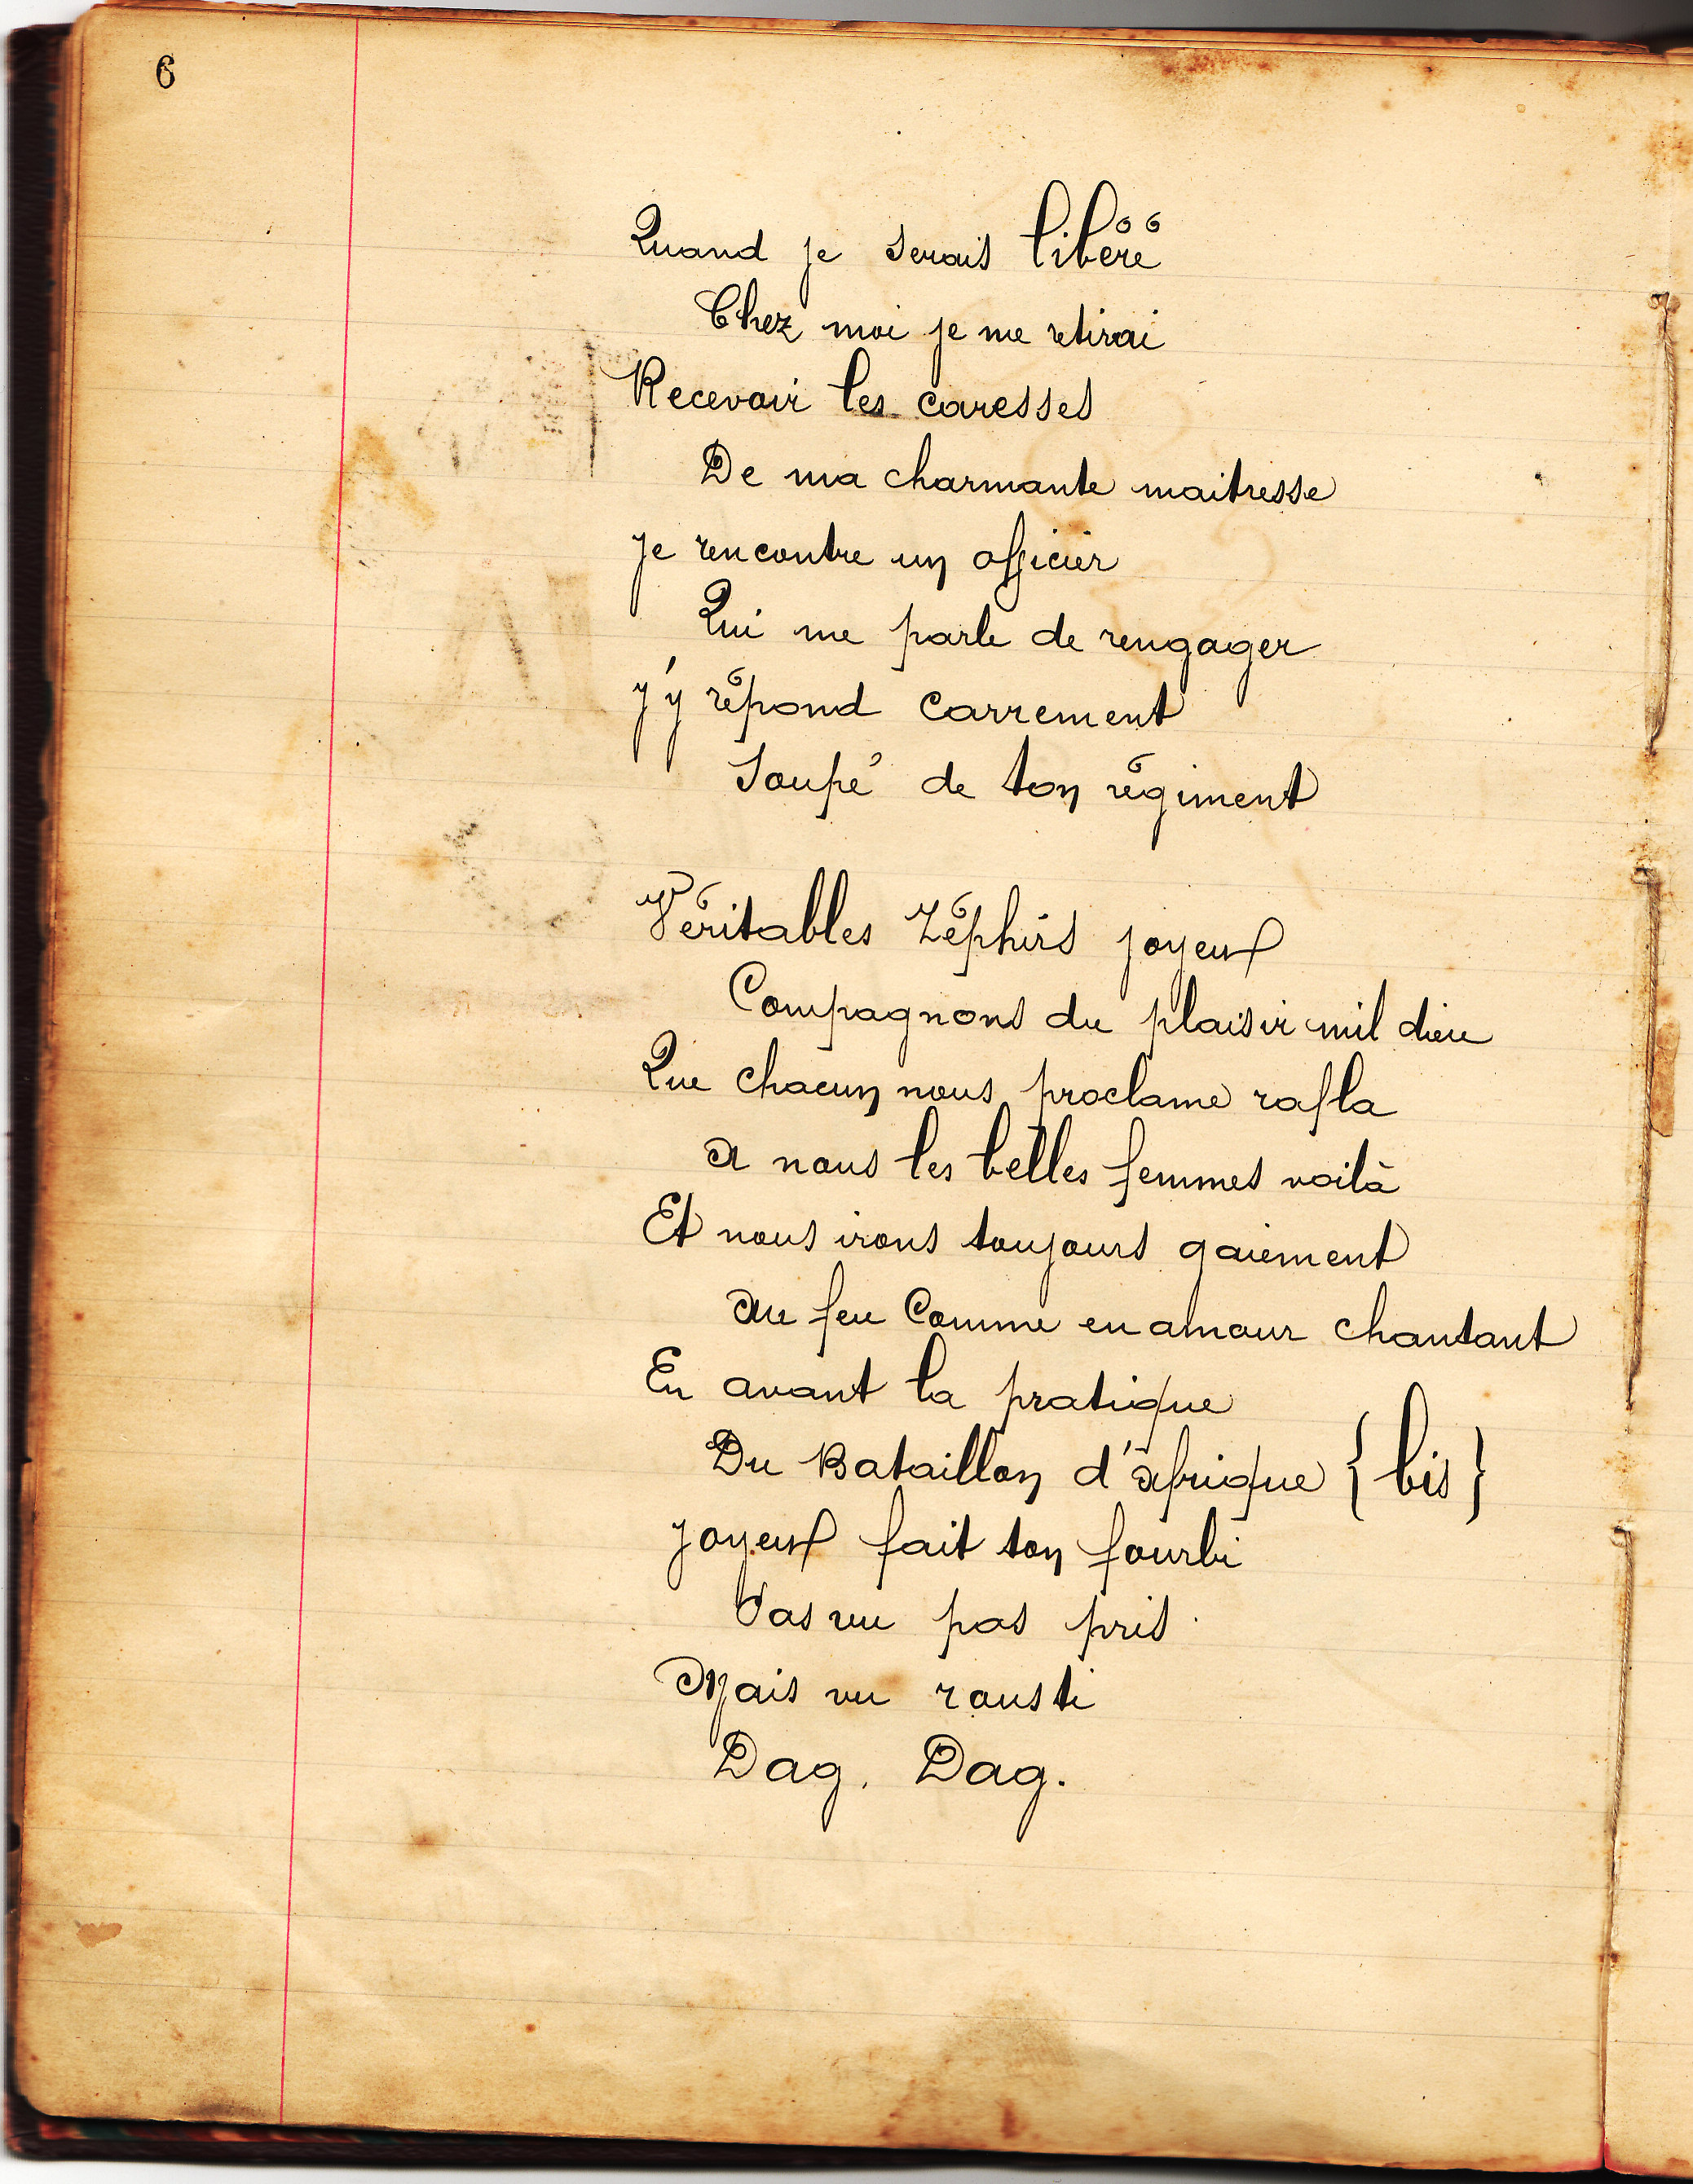 6
Quand je serais libéré
Chez moi je me retirai
Recevoir les caresses
De ma charmante maitresse
Je rencontre un officier
Qui me parle de rengager
J'y répond carrement
Soupé de ton régiment
Véritables Zéphirs joyeux
Compagnons du plaisir mil dieu
Que chacun nous proclame rafla
A nous les belles femmes voilà
Et nous irons toujours gaiement
Au feu Comme en amour chantant
En avant la pratique
Du Bataillon d'afrique {bis}
Joyeux fait ton fourbi
Pas vu pas pris
Mais vu rousti
Dag. Dag.